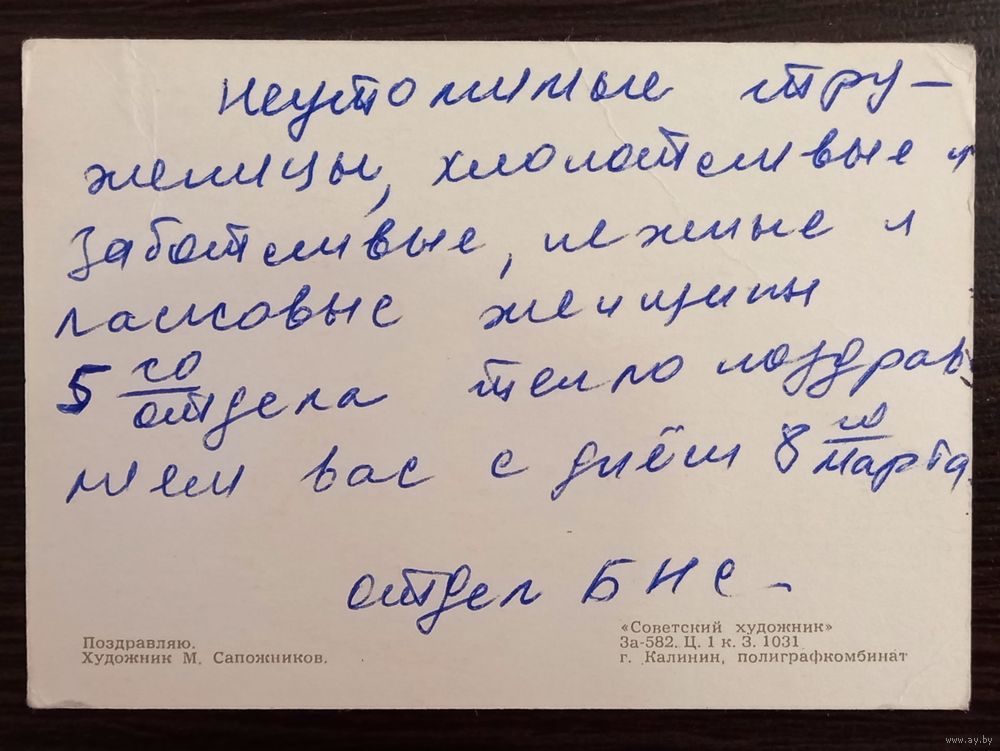 Неутомимые тру-
женицы, хлопотливые и
заботливые, нежные и
ласковые женщины
5го отдела тепло поздрав
ляем вас с днём 8го марта
отдел БНС.
Поздравляю.
Художник М. Сапожников.
«Советский художник»
За-582. Ц. 1 к. З. 1031
г. Калинин, полиграфкомбинат
www.ay.by